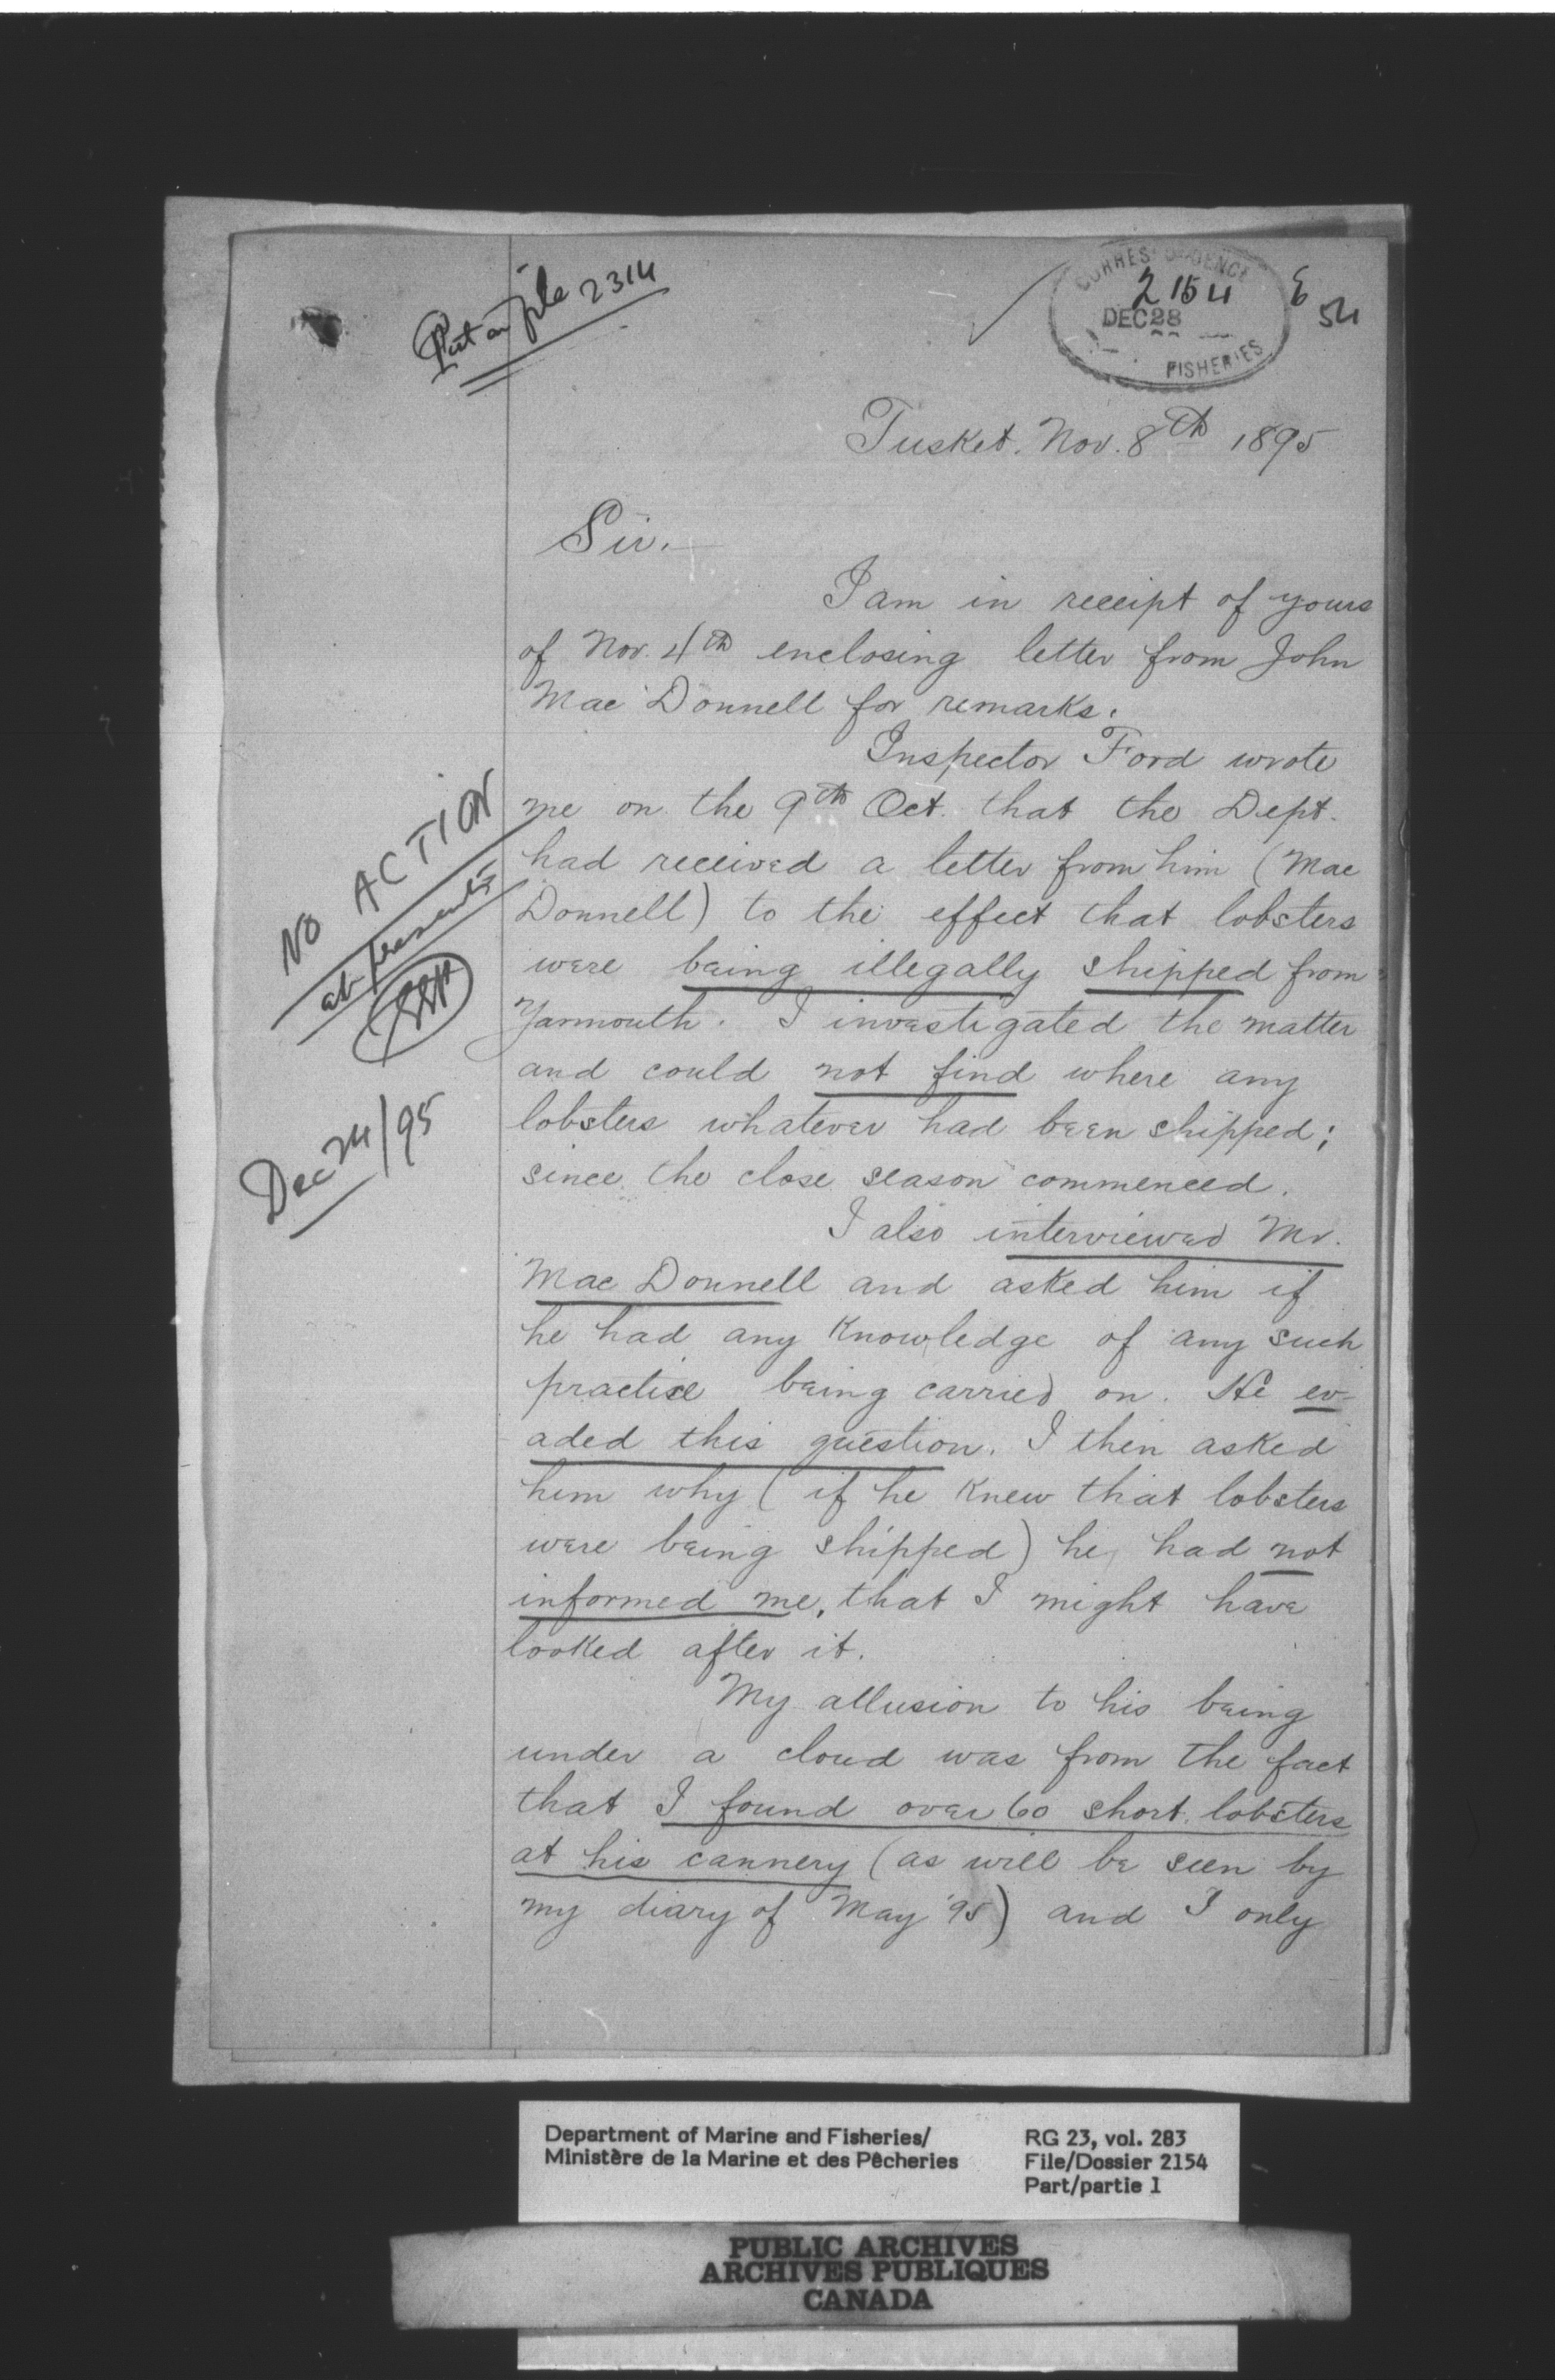 Put on file 2314
CORRESPONDENCE
2154
DEC 28
FISHERIES
54
Tusket. Nov. 8th 1895
Sir.
I am in receipt of yours
of Nov. 4th enclosing letter from John
Mac Donnell for remarks.
Inspector Ford wrote
me on the 9th Oct. that the Dept.
had received a letter from him (Mac
Donnell) to the effect that lobsters
were being illegally shipped from
Yarmouth. I investigated the matter
and could not find where any
lobsters whatever had been shipped;
since the close season commenced.
I also interviewed Mr.
Mac Donnell and asked him if
he had any Knowledge of any such
practice being carried on. He ev-
aded this question. I then asked
him why (if he Knew that lobsters
were being shipped) he had not
informed me, that I might have
looked after it.
My allusion to his being
under a cloud was from the fact
that I found over 60 short lobsters
at his cannery (as will be seen by
my diary of May '95) and I only
NO ACTION
at present
Dec 24/95
Department of Marine and Fisheries/
Ministère de la Marine et des Pêcheries
RG 23, vol. 283
File/Dossier 2154
Part/partie 1
PUBLIC ARCHIVES
ARCHIVES PUBLIQUES
CANADA